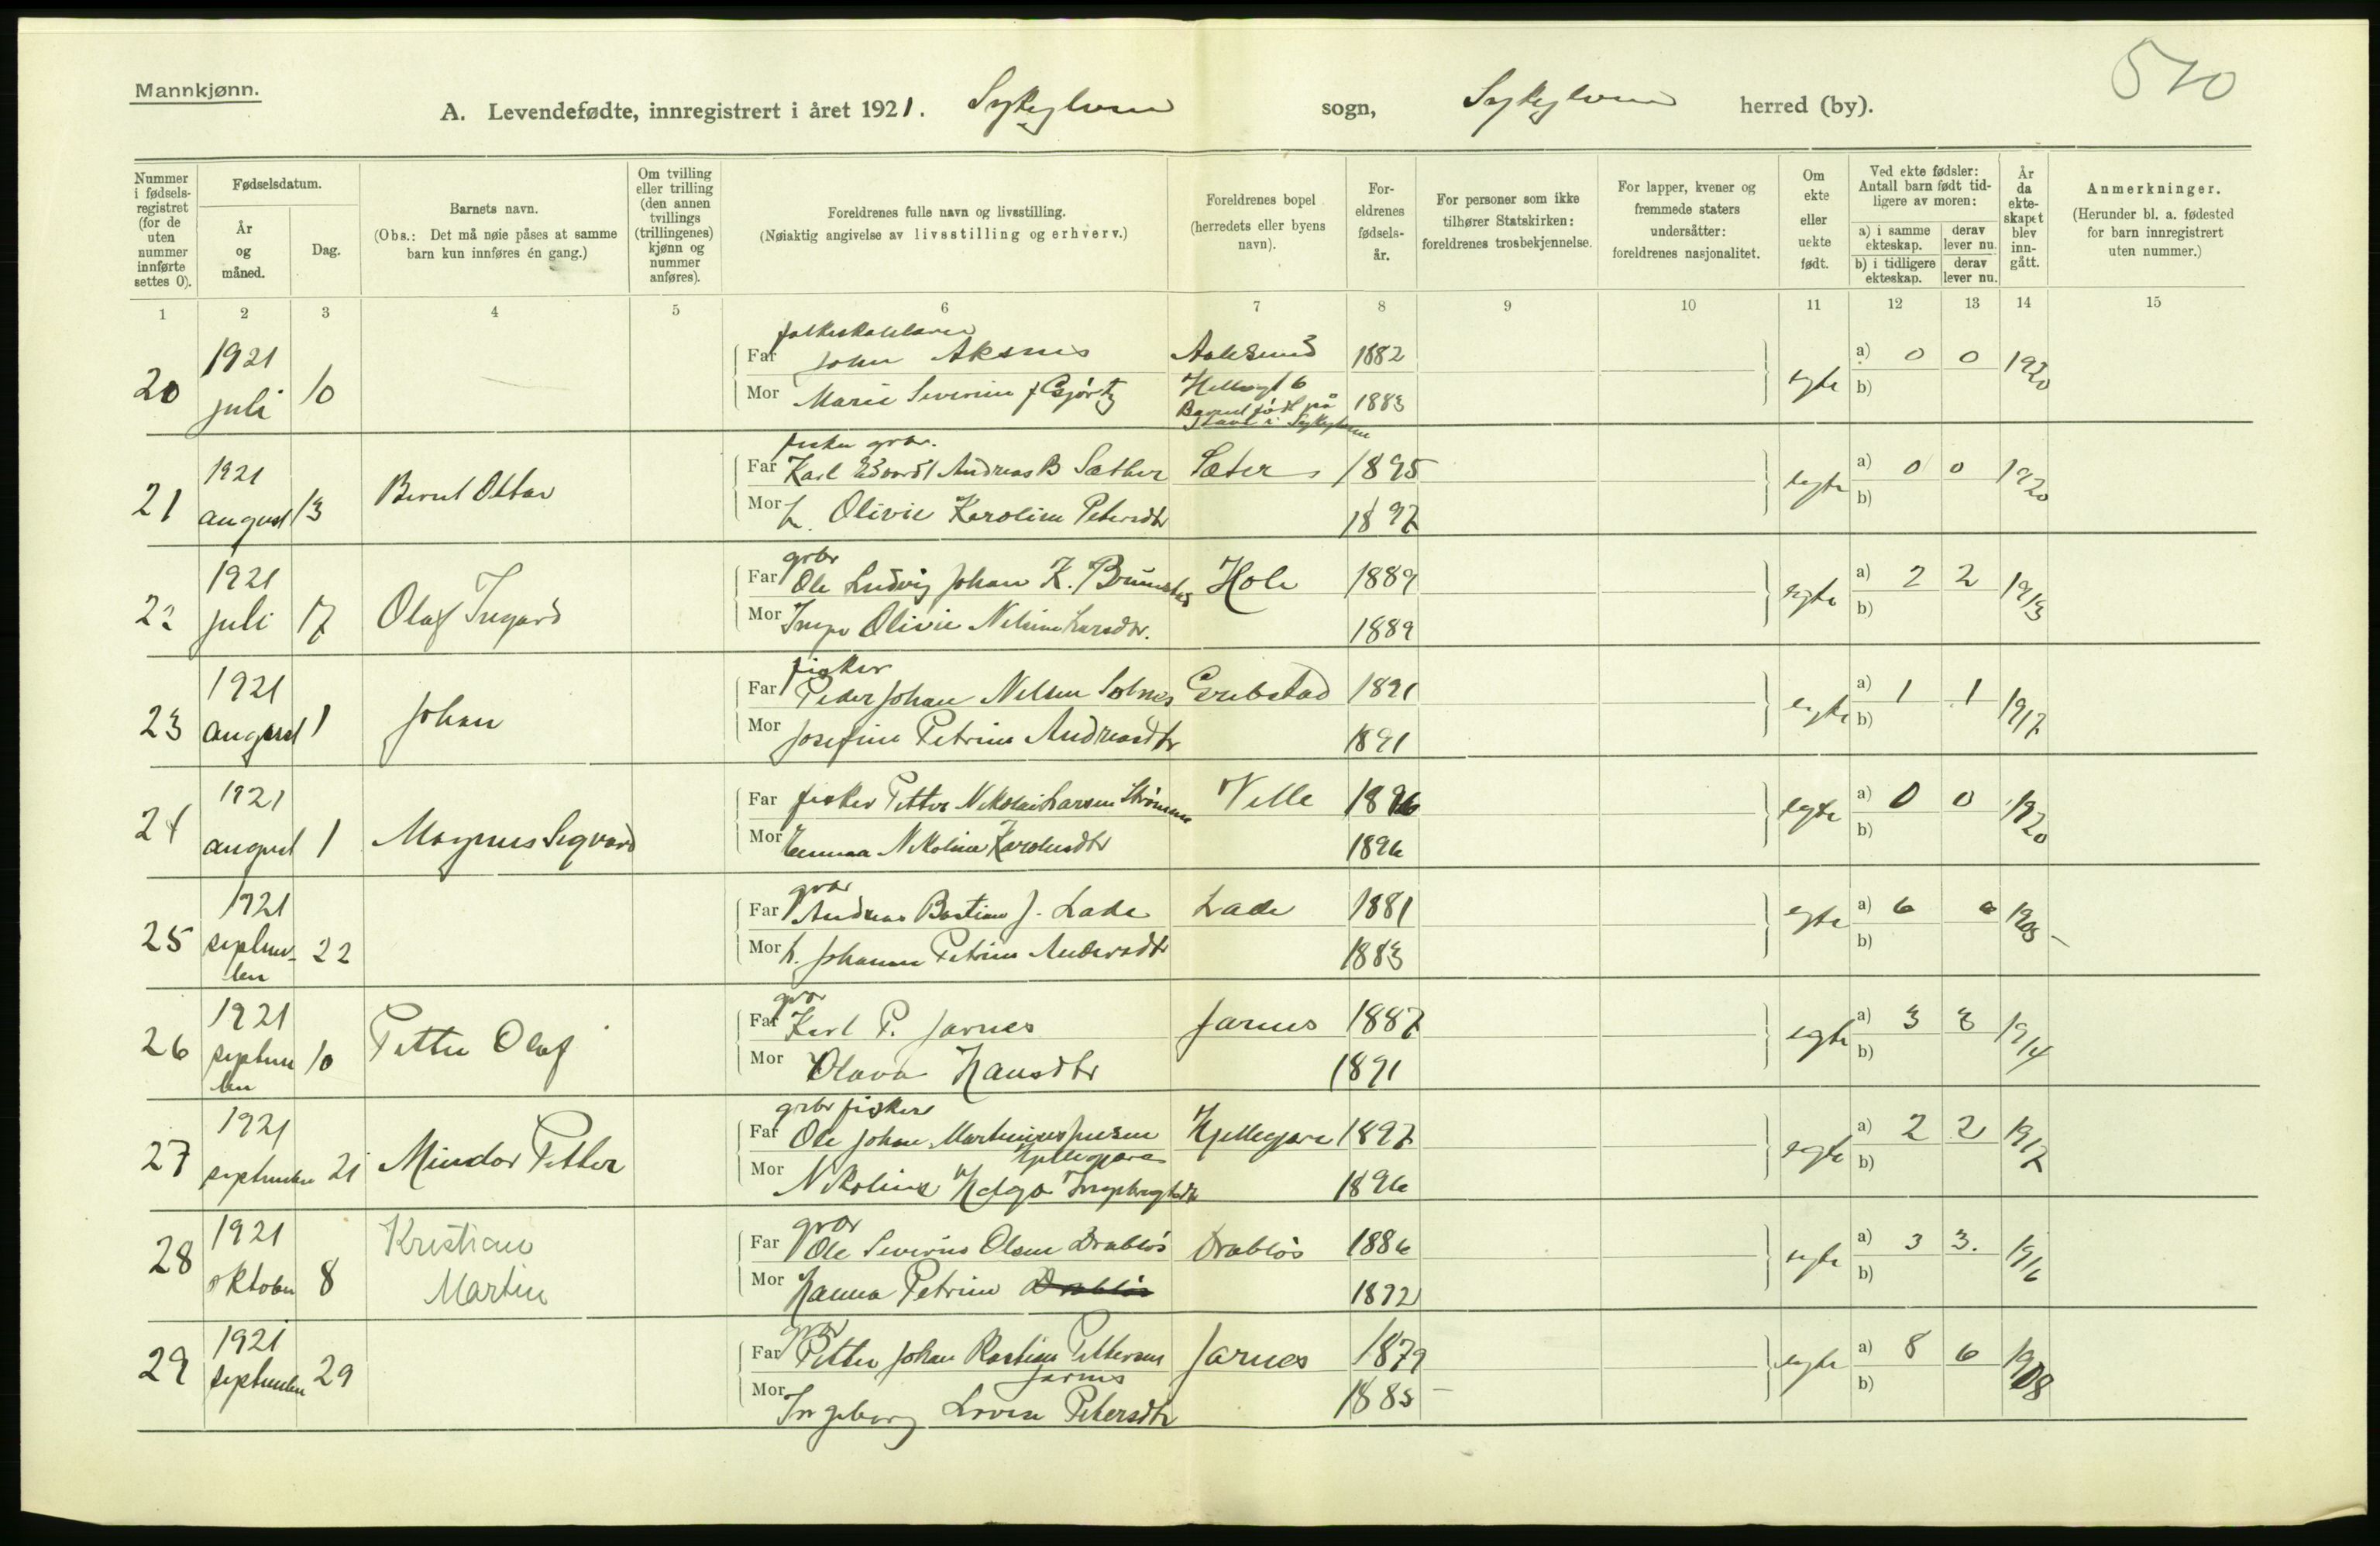 Mannkjønn.
510
A. Levendefødte, innregistrert i året 1921. Sykkylven sogn, Sykkylven herred (by).
Nummer i fødsels-registret (for de uten nummer innførte settes 0).
Fødselsdatum.
År og måned.
Dag.
Barnets navn.
(Obs.: Det må nøie påses at samme barn kun innføres én gang.)
Om tvilling eller trilling (den annen tvillings (trillingenes) kjønn og nummer anføres).
Foreldrenes fulle navn og livsstilling.
(Nøiaktig angivelse av livsstilling og erhverv.)
Foreldrenes bopel (herredets eller byens navn).
For-eldrenes fødsels-år.
For personer som ikke tilhører Statskirken: foreldrenes trosbekjennelse.
For lapper, kvener og fremmede staters undersåtter: foreldrenes nasjonalitet.
Om ekte eller uekte født.
Ved ekte fødsler: Antall barn født tid-ligere av moren:
a) i samme ekteskap.
b) i tidligere ekteskap.
derav lever nu.
derav lever nu.
År da ekte-skapet blev inn-gått.
Anmerkninger.
(Herunder bl. a. fødested for barn innregistrert uten nummer.)
1 2 3 4 5 6 7 8 9 10 11 12 13 14 15
20 1921 juli 10
Far John Aksnes Aalesund 1882
Mor Marie Severine f. Gjørtz 1883
Barnet født på
egte a) 0 0 1920
b)
21 1921 august 13 Bernt Ottar
Far Karl Edvard Andreas B Sæther Sæter 1895
Mor h. Olivie Karoline Petersdtr 1897
egte a) 0 0 1920
b)
22 1921 juli 17 Olaf Ingard
grbr
Far Ole Ludvig Johan K. Brunstad Hole 1889
Mor Inga Olivie Nelsine Larsdtr. 1889
egte a) 2 2 1913
b)
23 1921 august 1 Johan
fisker
Far Peder Johan Nelsen Solnes Grebstad 1891
Mor Josefine Petrine Andreasdtr 1891
egte a) 1 1 1917
b)
24 1921 august 1 Magnus Sigvard
Far fisker Petter Nikolai Larsen Strømme Velle 1896
Mor Emma Nikoline Karolusdtr 1896
egte a) 0 0 1920
b)
25 1921 september 22
Far Andreas Bastian J. Lade Lade 1881
Mor h. Johanne Petrine Andersdtr 1883
egte a) 6 6 1905
b)
26 1921 september 10 Petter Olaf
Far Karl P. Jarnes Jarnes 1887
Mor Olava Hansdtr 1891
egte a) 3 3 1914
b)
27 1921 september 21 Mindor Petter
grbr fisker
Far Ole Johan Martinius Jensen Hjellegjære 1897
Hjellegjære
Mor Nikoline Helga Ingebrigtsdtr 1896
egte a) 2 2 1917
b)
28 1921 oktober 8 Kristian Martin
Far Ole Severin Olsen Drabløs Drabløs 1886
Mor Hanna Petrine Drabløs 1892
egte a) 3 3. 1916
b)
29 1921 september 29
Far Petter Johan Bastian Pettersen Jarnes 1879
Jarnes
Mor Ingeborg Lovise Petersdtr 1885
egte a) 8 6 1908
b)